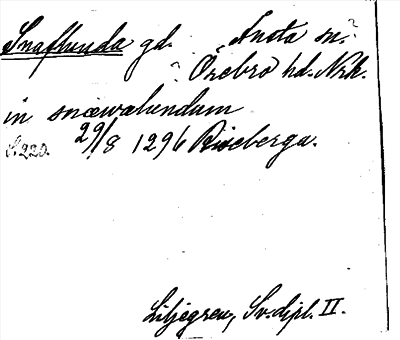 Snaflunda gd. Knista sn.?
? Örebro hd. Nrk.
in snæwalundum
S. 220. 29/8 1296 Riseberga.
Liljegren, Sv. dipl. II.